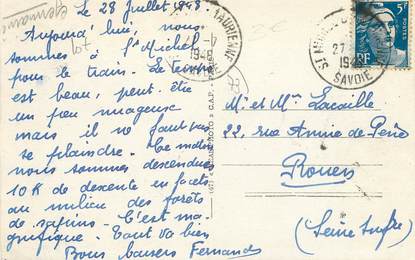 Le 28 Juillet 1948.
Aujourd'hui, nous
sommes à St Michel
pour le train. Le temps
est beau, peut-être
un peu nuageux
mais il ne faut pas
se plaindre. Ce matin
nous sommes descendus
10 K de descente en lacets
au milieu des forêts
de sapins. C'est ma-
gnifique. Tout va bien
Bons baisers Fernand
Mr et Me Lacaille
22, rue Annie de Père
Rouen
(Seine Infre)
MAURIENNE
1948
SAVOIE
27
1948
SAVOIE
5F
RF